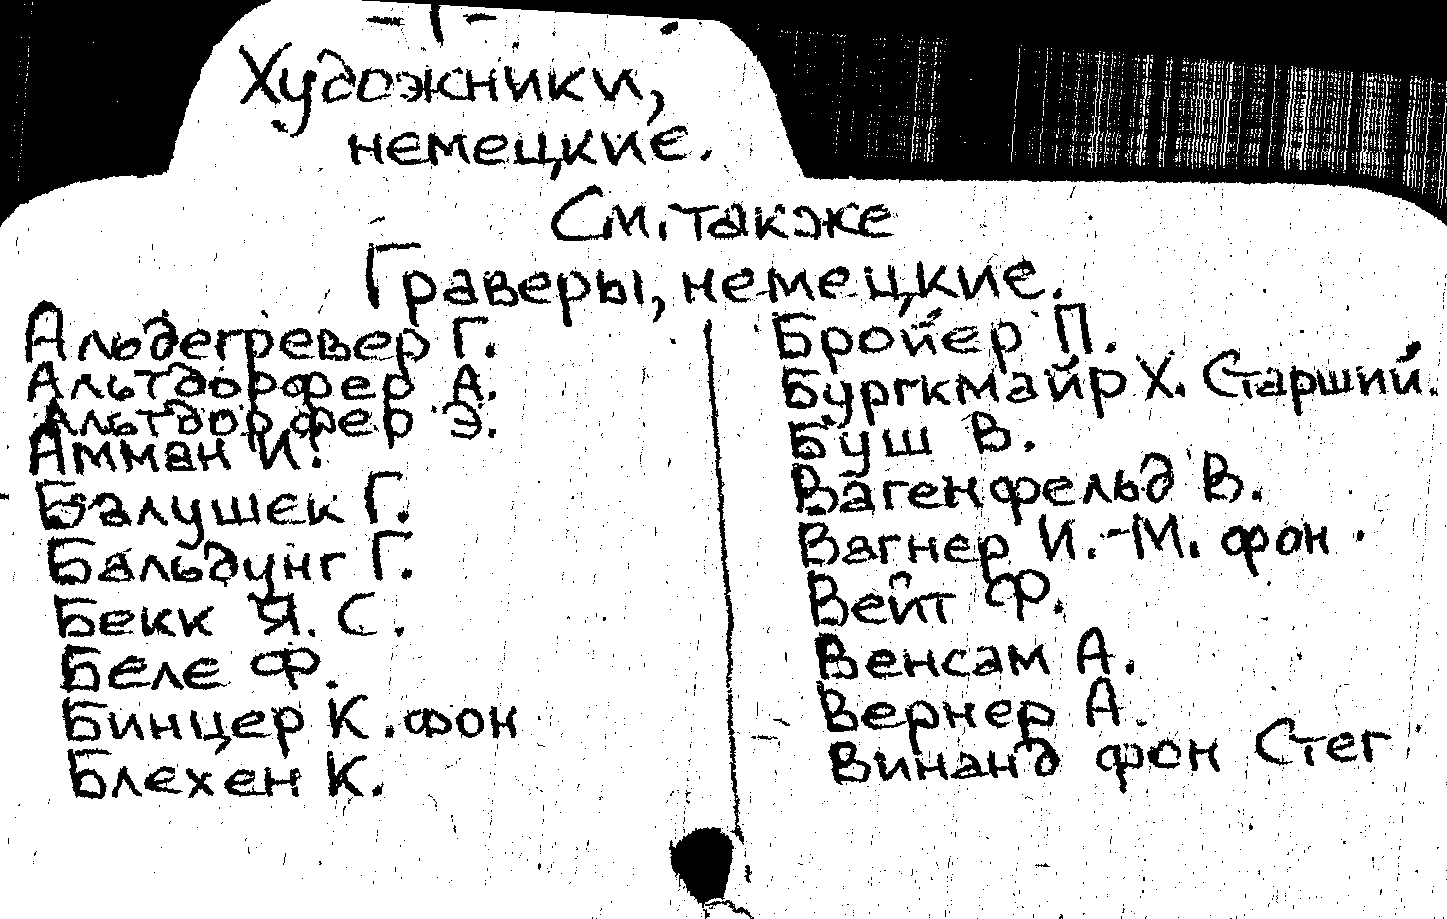 -1-
Художники,
немецкие.
См. также
Граверы, немецкие.
Альдегревер Г.
Альтдорфер А.
Альтдорфер Э.
Амман И.
Балушек Г.
Бальдунг Г.
Бекк Я. С.
Беле Ф.
Бинцер К. фон
Блехен К.
Бройер П.
Бургкмайр Х. Старший.
Буш В.
Вагенфельд В.
Вагнер И.-М. фон
Вейт Ф.
Венсам А.
Вернер А.
Винанд фон Стег